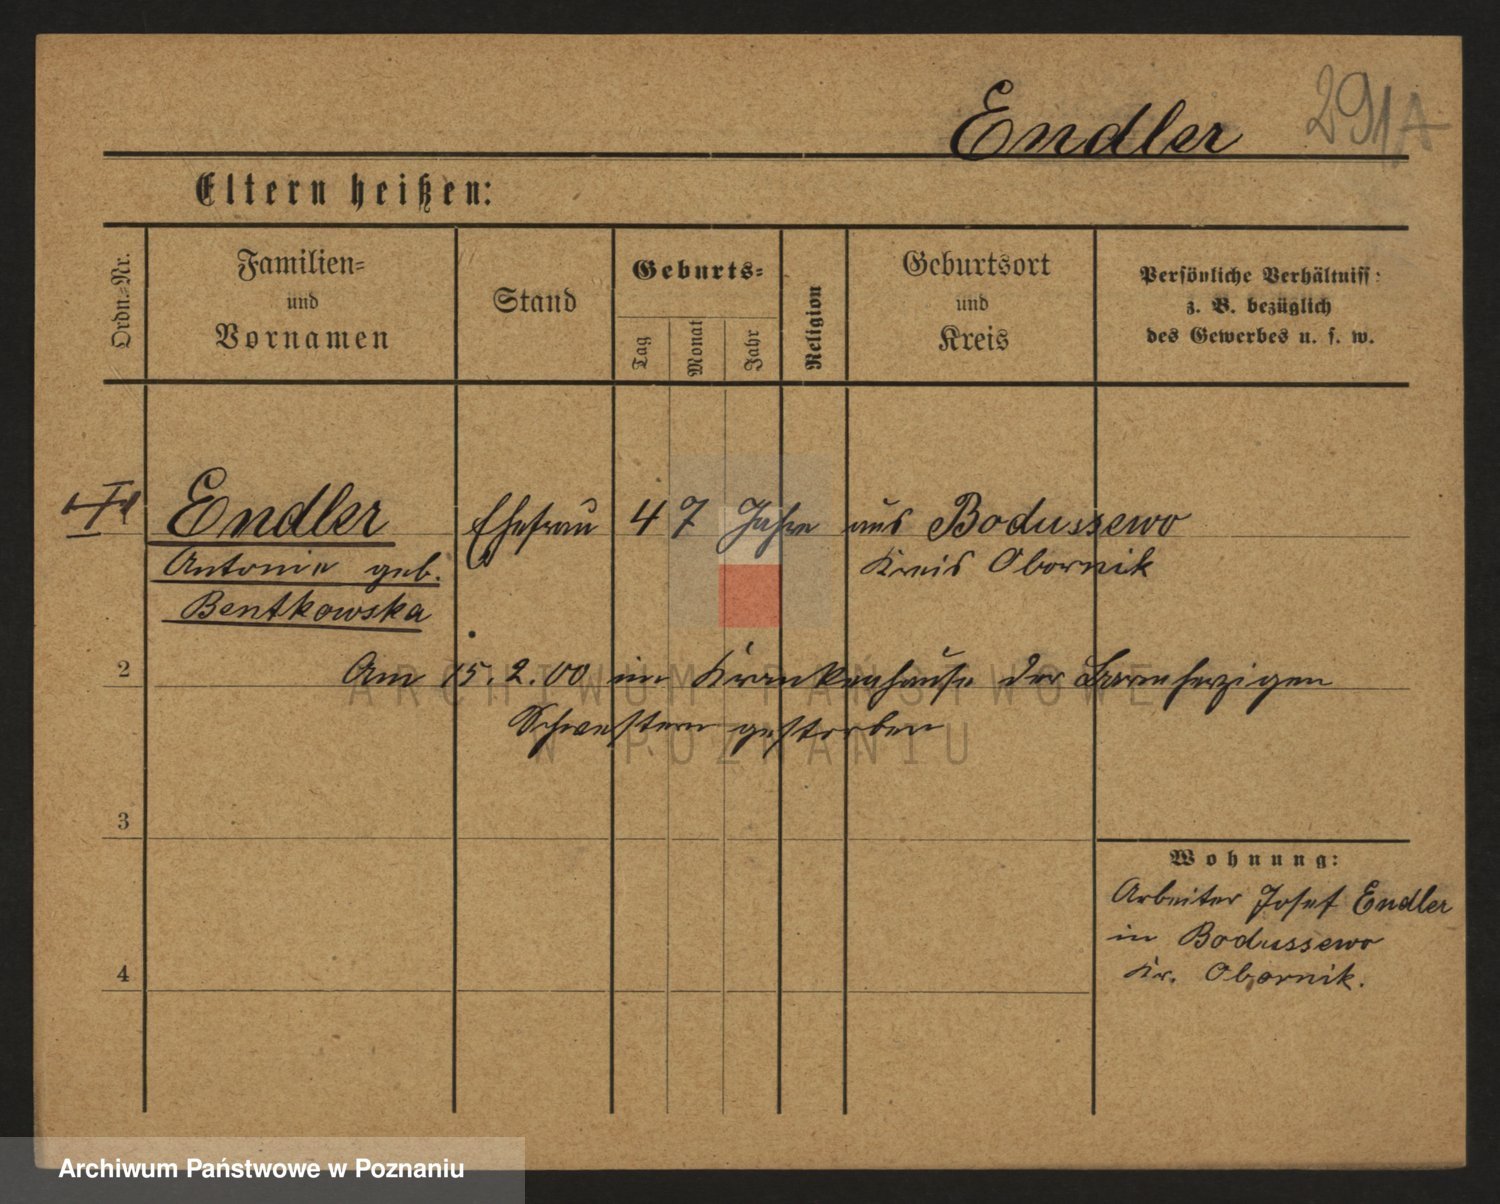 Endler 291A
Eltern heißen:
Ordn.-Nr.
Familien-
und
Vornamen
Stand
Geburts-
Tag
Monat
Jahr
Religion
Geburtsort
und
Kreis
Persönliche Verhältniss:
z. B. bezüglich
des Gewerbes u. s. w.
1 Endler Ehefrau 47 Jahre aus Bodussewo
Antonie geb. Kreis Obornik
Bentkowska
2 Am 15.2.00 im Krankenhause der Barmherzigen
Schwestern gestorben
ARCHIWUM PAŃSTWOWE
W POZNANIU
3
Wohnung:
Arbeiter Josef Endler
in Bodussewo
4 Kr. Obornik.
Archiwum Państwowe w Poznaniu